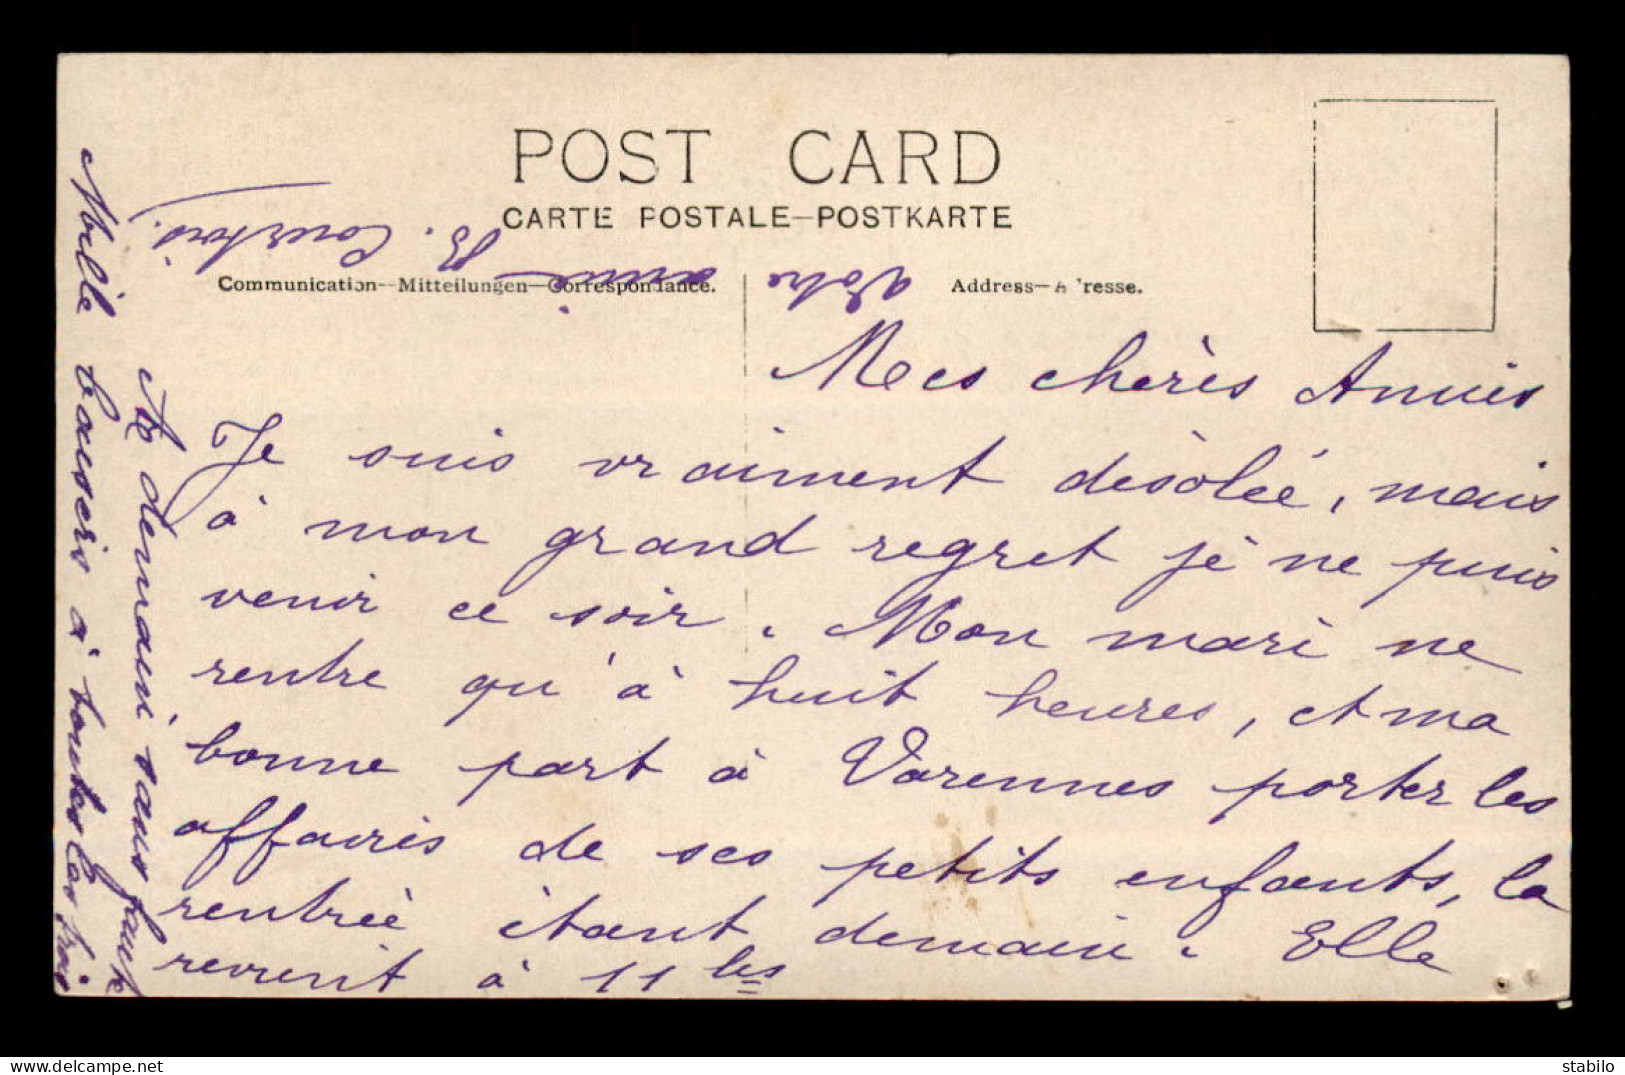 POST CARD
CARTE POSTALE—POSTKARTE
Communication—Mitteilungen—Correspondance.
Address—A resse.
Mes chères Amies
Je suis vraiment désolée, mais
à mon grand regret je ne puis
venir ce soir. Mon mari ne
rentre qu'à huit heures, et ma
bonne part à Varennes porter les
affaires de ses petits enfants, la
rentrée étant demain. Elle
revient à 11 hes
A demain, sans faute
Mille baisers à toutes les trois
Votre
amie
B. Courtois.
stabilo